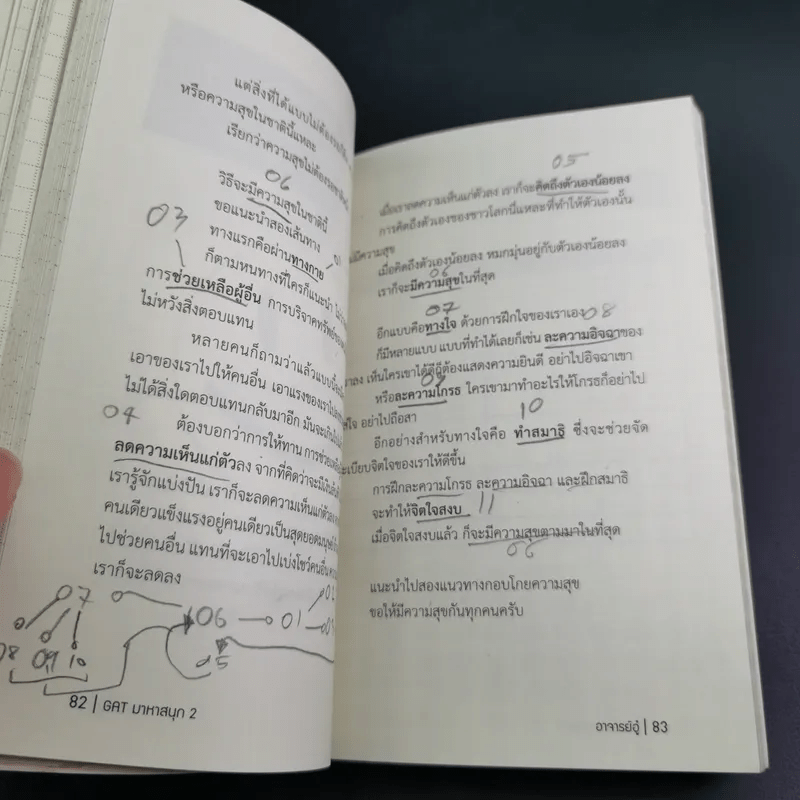 แต่สิ่งที่ได้แบบไม่ต้อง
หรือความสุขในชาตินี้แหละ
เรียกว่าความสุขไม่ต้อง
06
วิธีจะมีความสุขในชาตินี้
ขอแนะนำสองเส้นทาง
03
ทางแรกคือผ่านทางกาย
ก็ตามหนทางที่ใครก็แนะนำ
การช่วยเหลือผู้อื่น การบริจาคทรัพย์
ไม่หวังสิ่งตอบแทน
หลายคนก็ถามว่าแล้วแบบนี้
เอาของเราไปให้คนอื่น เอาแรงของเราไป
ไม่ได้สิ่งใดตอบแทนกลับมาอีก มันจะเกิน
04
ต้องบอกว่าการให้ทาน การช่วยเหลือ
ลดความเห็นแก่ตัวลง จากที่คิดว่าจะมีเงิน
เรารู้จักแบ่งปัน เราก็จะลดความเห็นแก่ตัวลง
คนเดียวแข็งแรงอยู่คนเดียวเป็นสุดยอดมนุษย์
ไปช่วยคนอื่น แทนที่จะเอาไปเบ่งโชว์คนอื่น
เราก็จะลดลง
07
06 01
08 09 10
82 | GAT มาหาสนุก 2
05
เมื่อเราลดความเห็นแก่ตัวลง เราก็จะคิดถึงตัวเองน้อยลง
การคิดถึงตัวเองของชาวโลกนี่แหละที่ทำให้ตัวเองนั้น
มีความสุข
เมื่อคิดถึงตัวเองน้อยลง หมกมุ่นอยู่กับตัวเองน้อยลง
06
เราก็จะมีความสุขในที่สุด
07
08
อีกแบบคือทางใจ ด้วยการฝึกใจของเราเอง
ก็มีหลายแบบ แบบที่ทำได้เลยก็เช่น ละความอิจฉาของ
ลง เห็นใครเขาได้ดีก็ต้องแสดงความยินดี อย่าไปอิจฉาเขา
09
หรือละความโกรธ ใครเขามาทำอะไรให้โกรธก็อย่าไป
อย่าไปถือสา
10
อีกอย่างสำหรับทางใจคือ ทำสมาธิ ซึ่งจะช่วยจัด
ระเบียบจิตใจของเราให้ดีขึ้น
การฝึกละความโกรธ ละความอิจฉา และฝึกสมาธิ
จะทำให้จิตใจสงบ 11
เมื่อจิตใจสงบแล้ว ก็จะมีความสุขตามมาในที่สุด
06
แนะนำไปสองแนวทางกอบโกยความสุข
ขอให้มีความสุขกันทุกคนครับ
อาจารย์อู๋ | 83